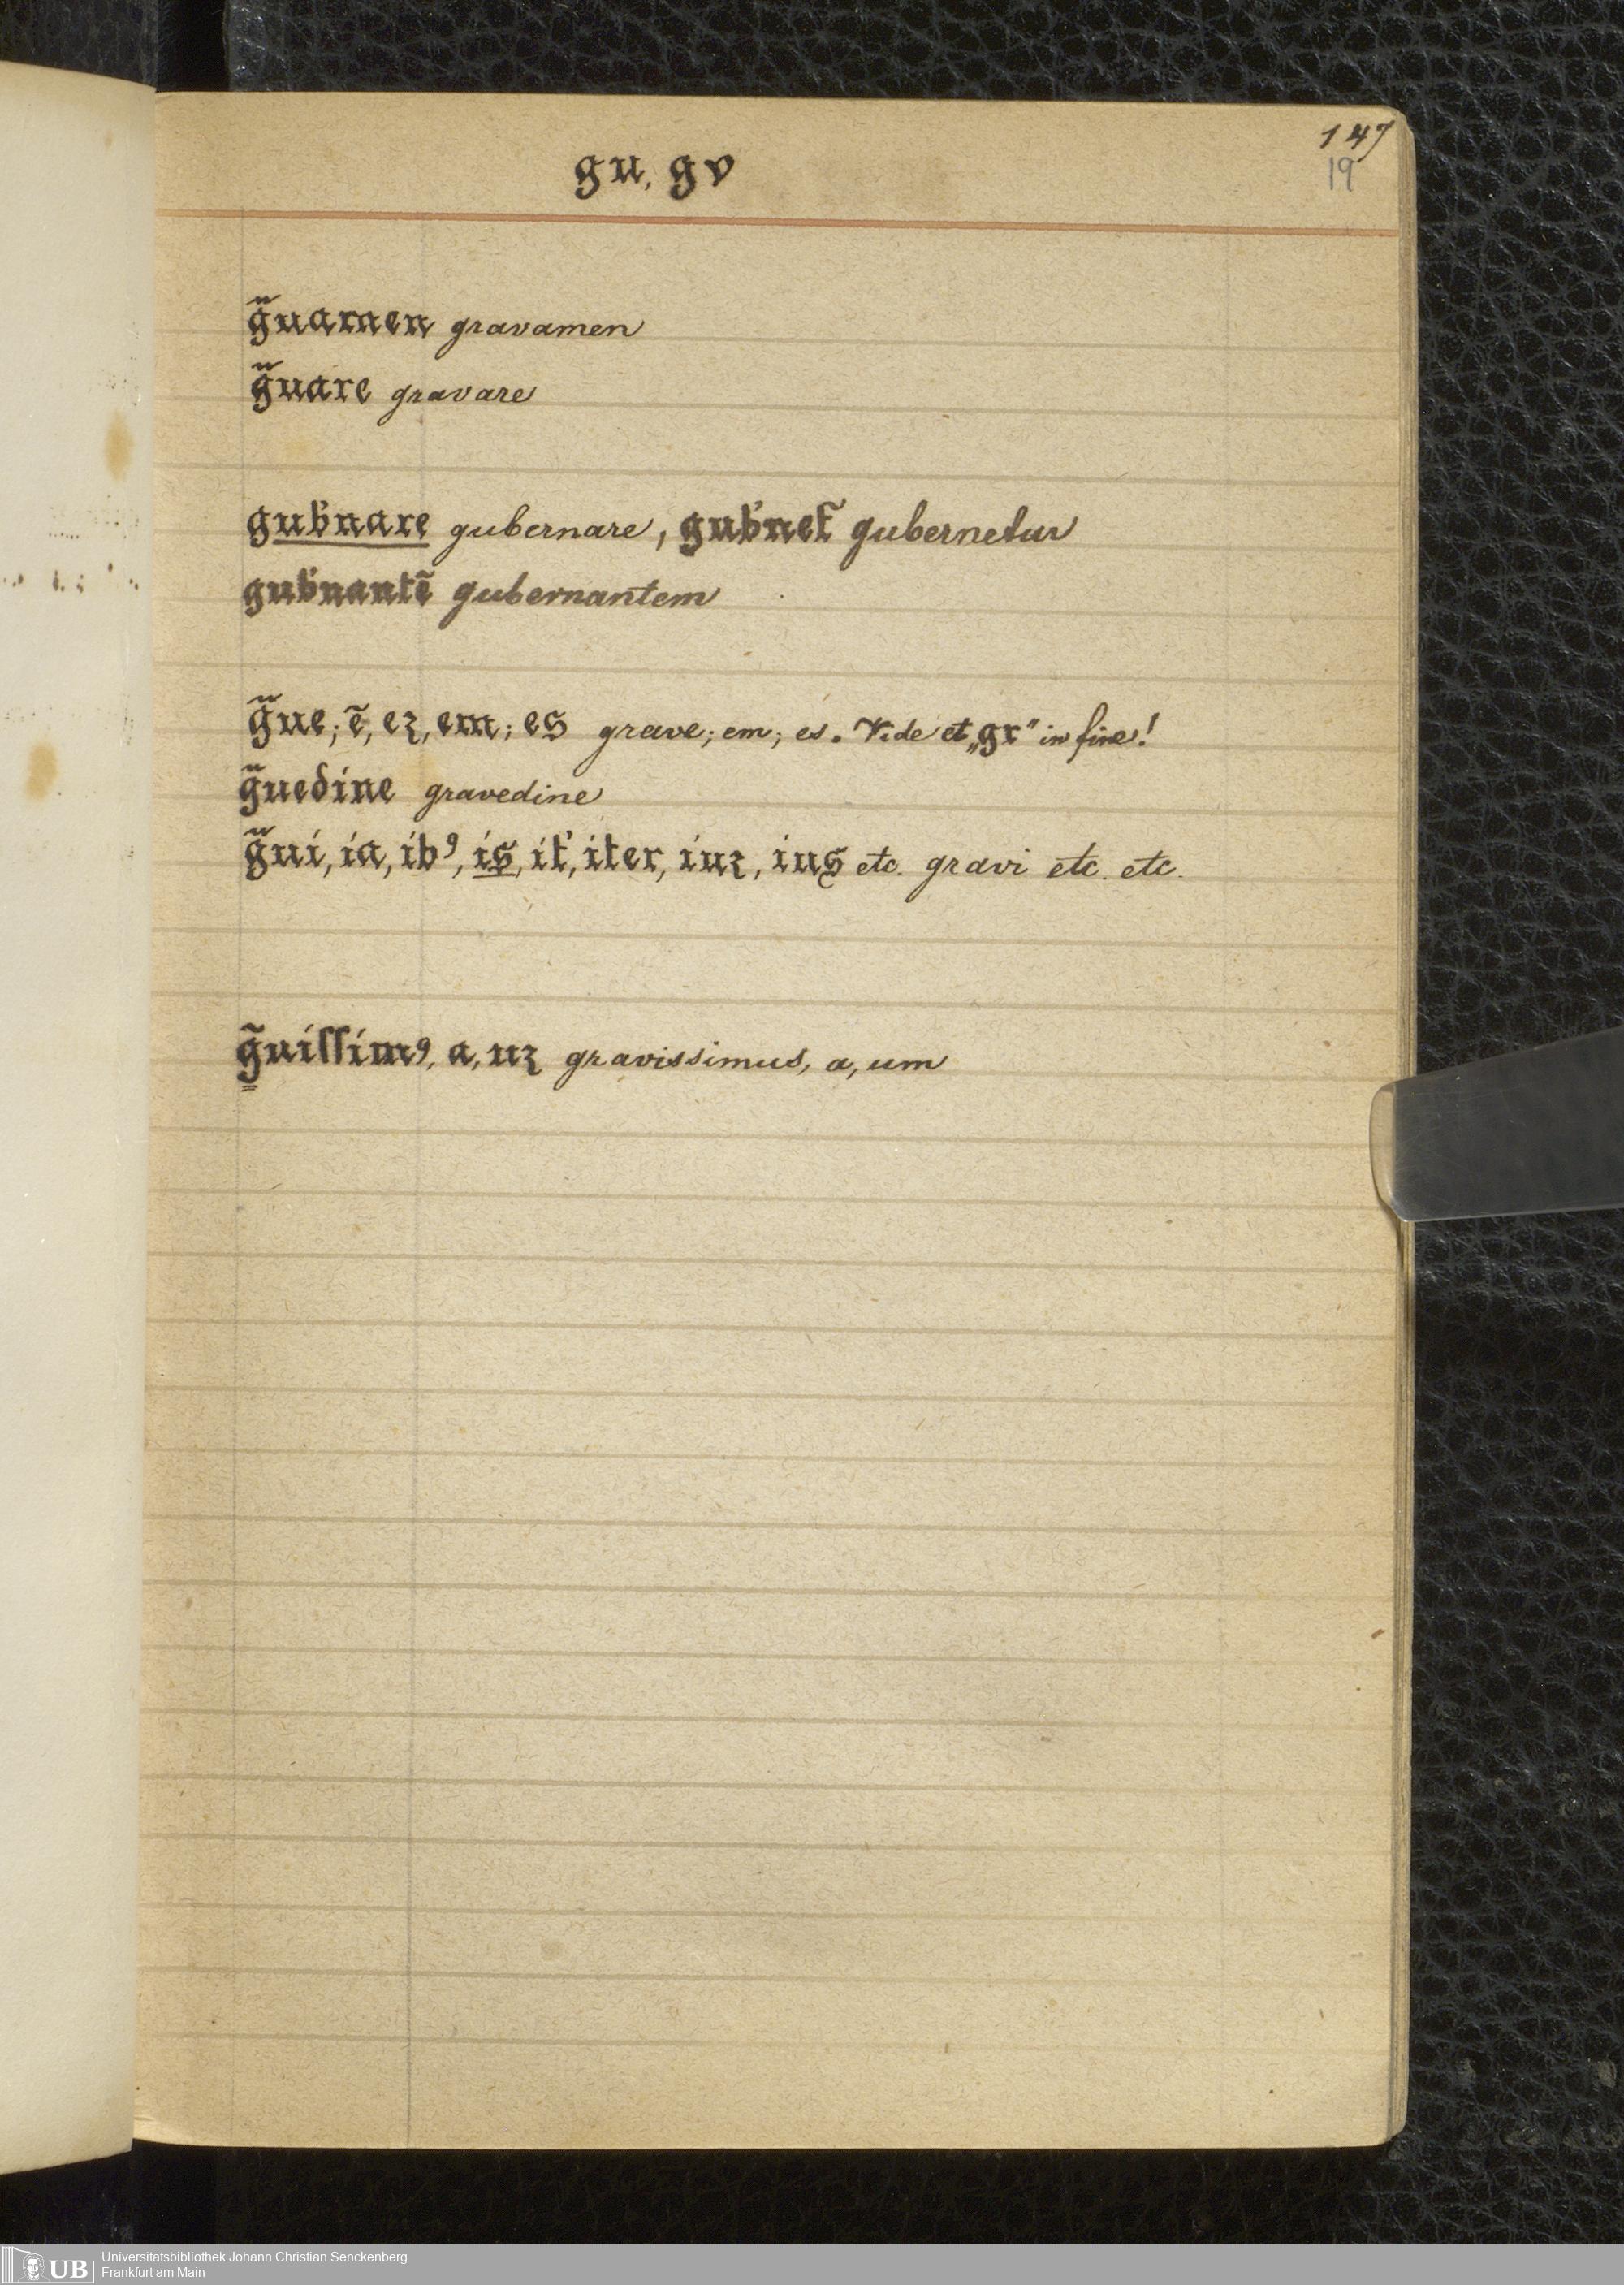 147
19
gu, gv
g̃uamen gravamen
g̃uare gravare
gub̾nare gubernare, gub̾net᷑ gubernetur
gub̾nantẽ gubernantem
g̃ue; ẽ, eꝫ, em; es grave; em; es. Vide et „gr" in fine!
g̃uedine gravedine
g̃ui, ia, ibꝰ, is, it̾, iter, iuꝫ, ius etc. gravi etc. etc.
g̃uiſſimꝰ, a, uꝫ gravissimus, a, um
UB Universitätsbibliothek Johann Christian Senckenberg
Frankfurt am Main